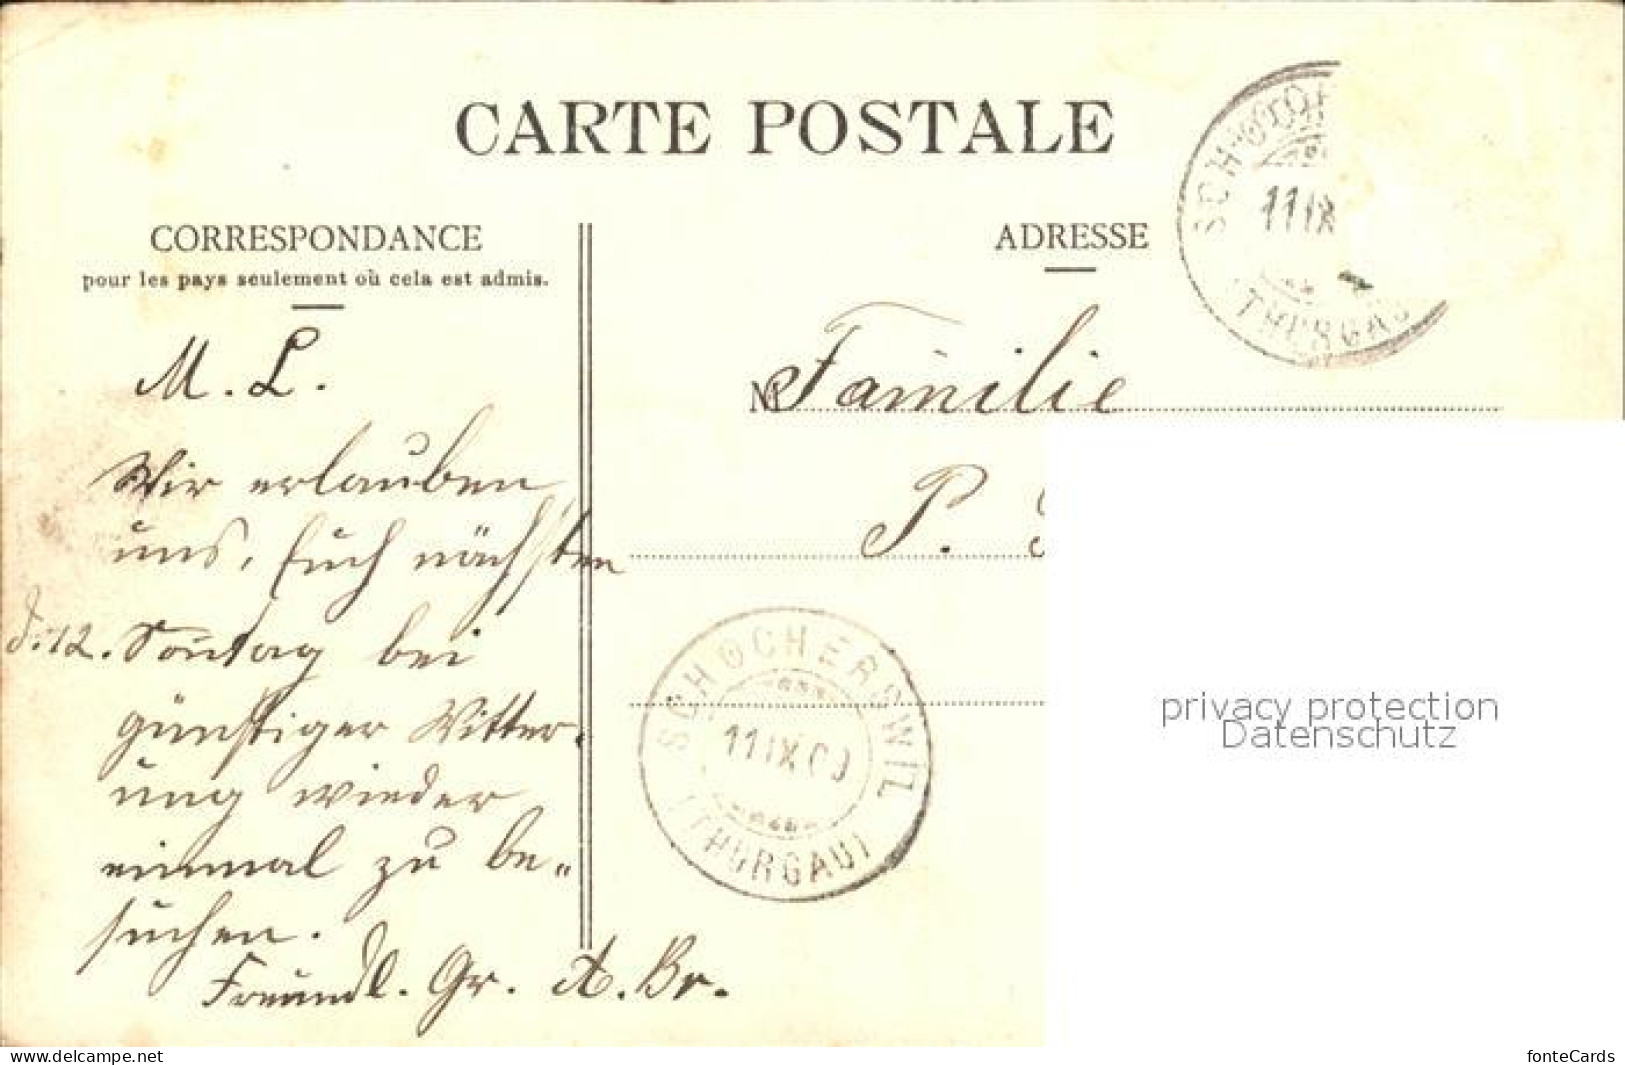 CARTE POSTALE
CORRESPONDANCE
pour les pays seulement où cela est admis.
ADRESSE
M. L.
Wir erlauben
uns, Euch nächsten
d. 12. Sonntag bei
günstiger Witter-
ung wieder
einmal zu be-
suchen.
Freundl. Gr. A. Br.
Familie
P.
SCHOCHERSWIL
11 IX 09
(THURGAU)
11 IX
(THURGAU
privacy protection
Datenschutz
www.delcampe.net
fonteCards